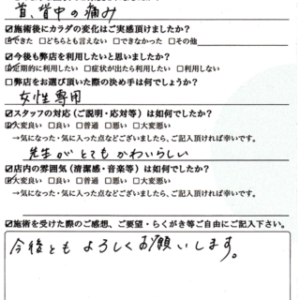 首、背中の痛み
☑施術後にカラダの変化はご実感頂けましたか?
☑できた □どちらとも言えない □できなかった □その他
☑今後も弊店を利用したいと思いましたか?
☑定期的に利用したい □症状が出たら利用したい □利用しない
□弊店をお選び頂いた際の決め手は何でしょうか?
女性専用
☑スタッフの対応(ご説明・応対等)は如何でしたか?
☑大変良い □良い □普通 □悪い □大変悪い
→気になった・気に入った点などございましたら、ご記入頂ければ幸いです。
先生がとてもかわいらしい
☑店内の雰囲気(清潔感・音楽等)は如何でしたか?
☑大変良い □良い □普通 □悪い □大変悪い
→気になった・気に入った点などございましたら、ご記入頂ければ幸いです。
☑施術を受けた際のご感想、ご要望・らくがき等ご自由にご記入下さい。
今後ともよろしくお願いします。